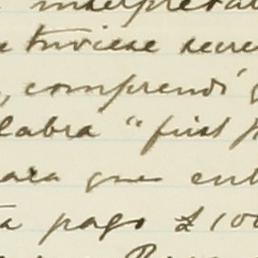 interpreta
tuviese secre
, comprendi
labra "first
para que ent
pago £ 100